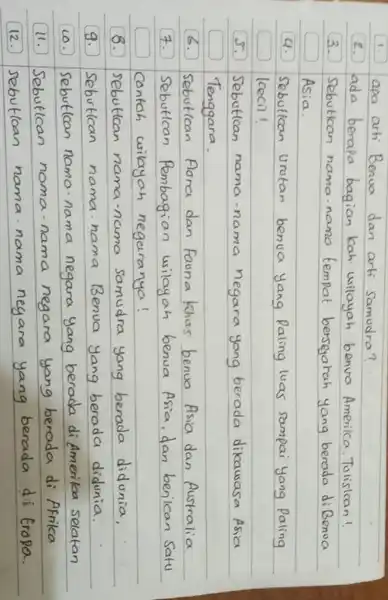 1. apa arti Benua dan arti samudra?
2. ada berapa bagian kah wilayah benua Amerika. Tuliskan!
3. Sebutkan nama-nama tempat bersejarah yang berada di Benua
Asia.
4. Sebutkan urutan benua yang Paling luas sampai yang Paling
kecil!
5. Sebutkan nama-nama negara yang berada dikawasa Asia
Tenggara.
6. Sebutkan Flora dan Fauna khas benua Asia dan Australia
7. Sebutkan Pembagian wilayah benua Asia, dan berikan satu
Contoh wilayah negaranya!
8. Sebutkan nama-nama Samudra yang berada didunia.
9. Sebutkan nama-nama Benua yang berada didunia.
10. Sebutkan nama-nama negara yang berada di Amerika selatan
11. Sebutkan nama-nama negara yang berada di Afrika
12. Sebutkan nama-nama negara yang berada di Eropa.